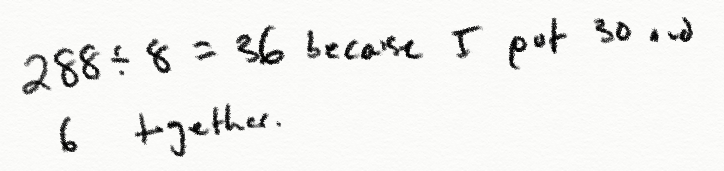 288÷8 = 36 because I put 30 and
6 together.